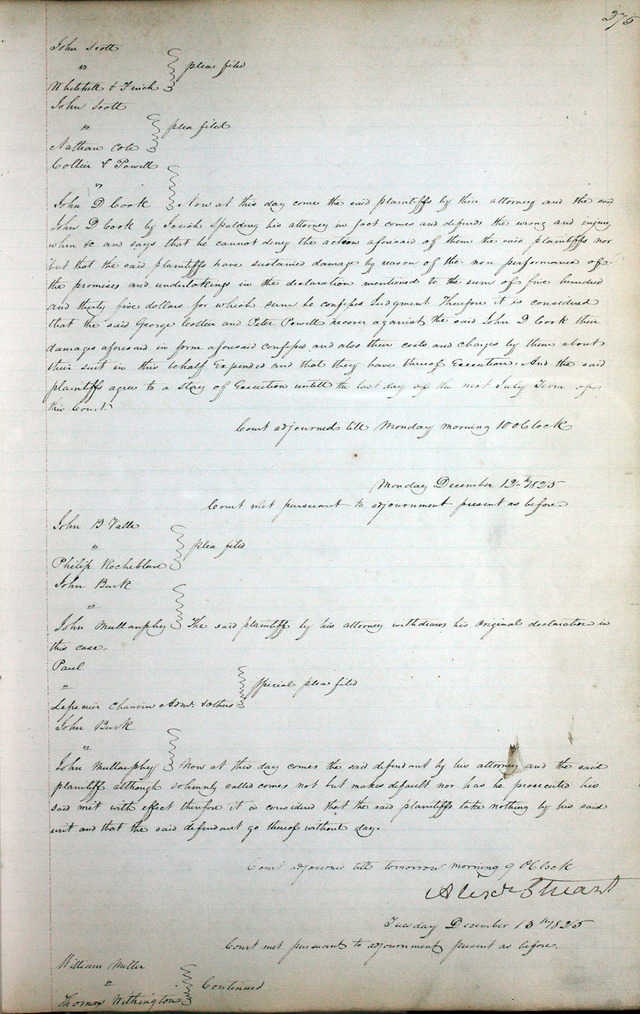 375
John Scott
"
Whitehill & Finch } plea filed
John Scott
"
Nathan Cole } plea filed
Collier & Powell
"
John D Cook } Now at this day come the said plaintiffs by their attorney and the said
John D Cook by Josiah Spalding his attorney in fact comes and defends the wrong and injury
when &c and says that he cannot deny the action aforesaid of them the said plaintiffs nor
but that the said plaintiffs have sustained damage by reason of the non performance of
the promises and undertakings in the declaration mentioned to the sum of five hundred
and thirty five dollars for which sum he confesses Judgment Therefore it is considered
that the said George Collier and Peter Powell recover against the said John D Cook their
damages aforesaid in form aforesaid confessed and also their costs and charges by them about
their suit in this behalf Expended and that they have thereof Execution. And the said
plaintiffs agree to a stay of Execution untill the last day of the next July Term of
this Court
Court adjourned till Monday morning 10 oClock
Monday December 12th 1825
Court met pursuant to adjournment present as before
John B Valle
"
Philip Rocheblave } plea filed
John Burk
"
John Mullanphy } The said plaintiff by his attorney withdraws his Original declaration in
this case.
Paul
"
Lefrenier Chauvin Admr. & others } Special plea filed
John Burk
"
John Mullanphy } Now at this day comes the said defendant by his attorney and the said
plaintiff although solemnly called comes not but makes default nor has he prosecuted his
said writ with effect therefore it is considered that the said plaintiffs take nothing by his said
writ and that the said defendant go thereof without day.
Court adjourned till tomorrow morning 9 OClock
Alexr Stuart
Tuesday December 13th 1825
Court met pursuant to adjournment present as before.
William Miller
"
Thomas Withington } Continued